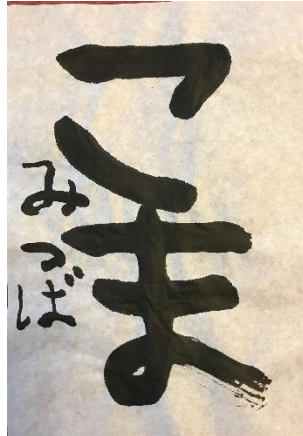 こま
みつば